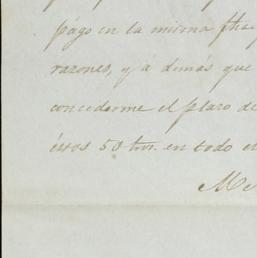 págo en la misma fha
razones, y, a demás que
concederme el plazo de
éstos 50 tns. en todo e
Me